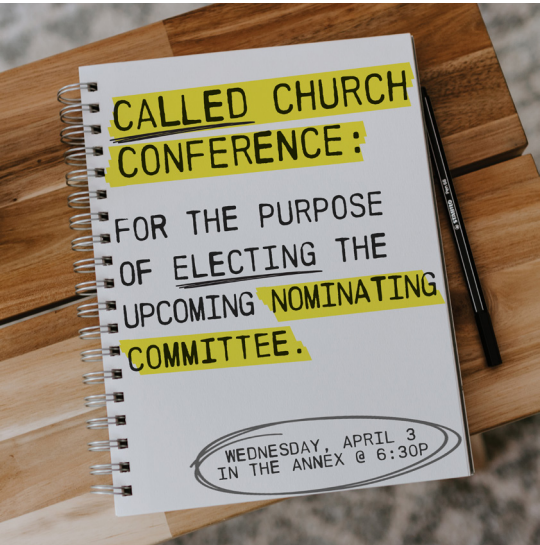 CALLED CHURCH
CONFERENCE:
FOR THE PURPOSE
OF ELECTING THE
UPCOMING NOMINATING
COMMITTEE.
WEDNESDAY, APRIL 3
IN THE ANNEX @ 6:30P